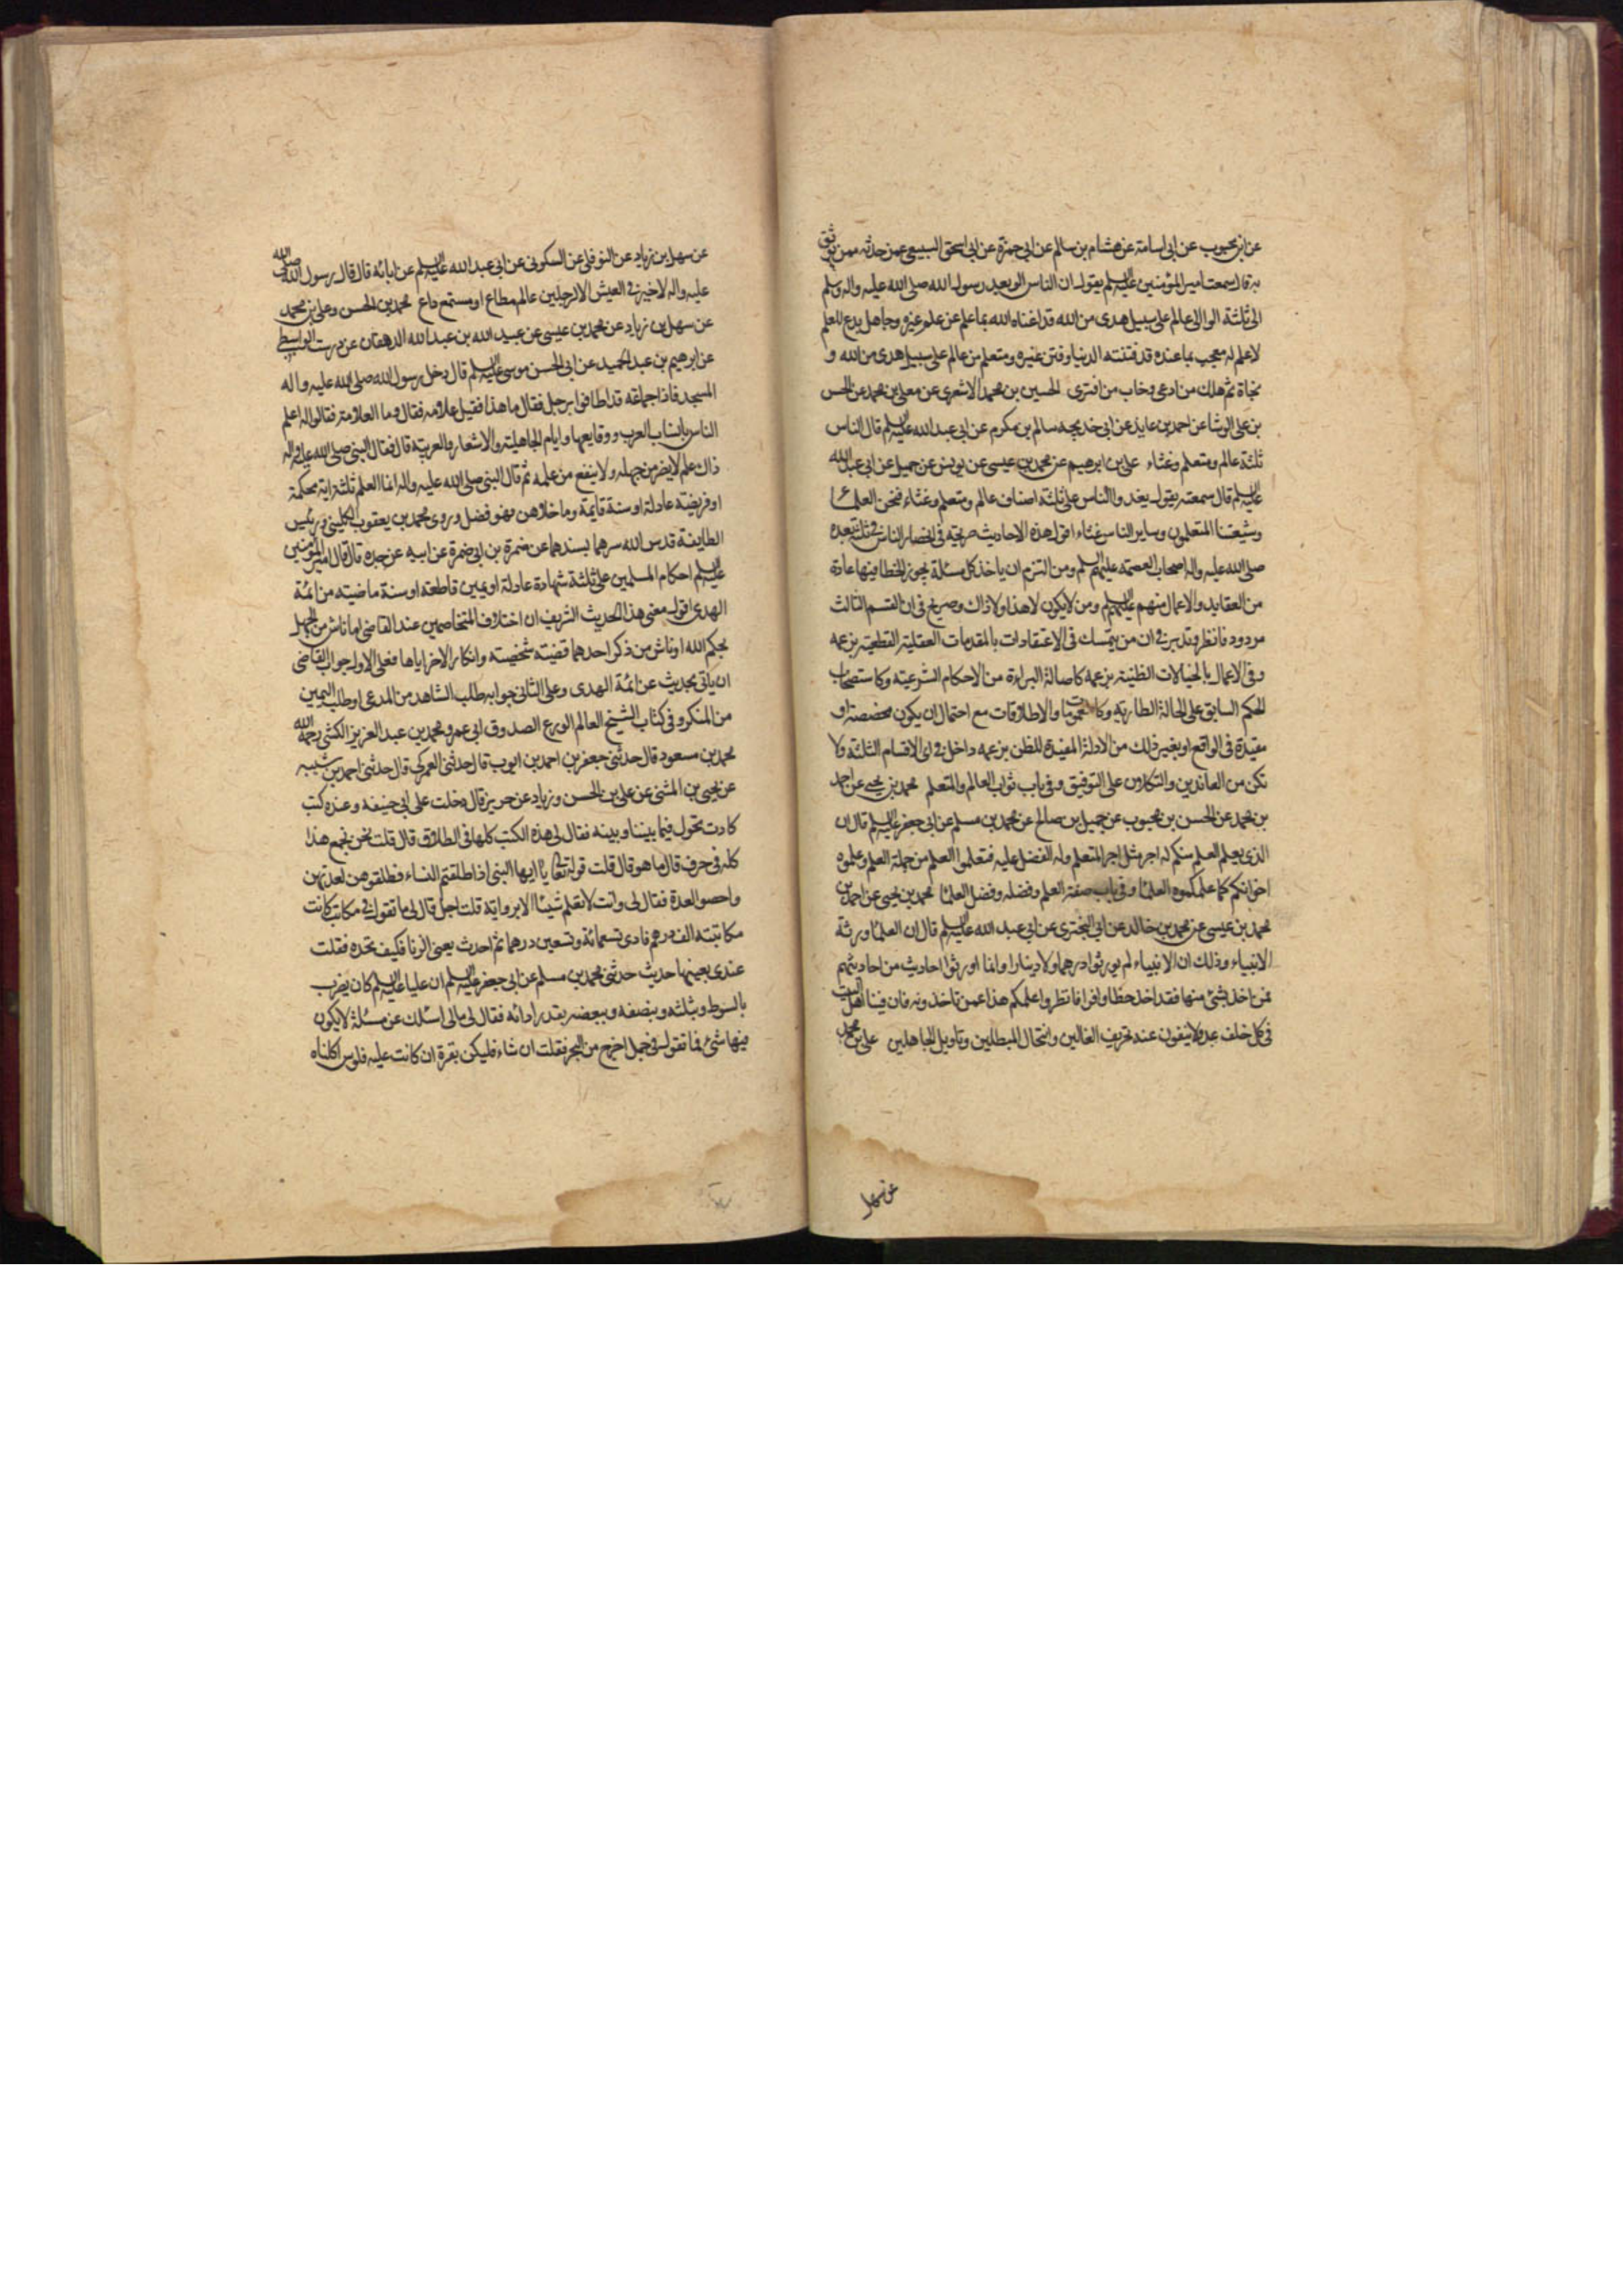 عن ابن محبوب عن ابی اسامة عن هشام بن سالم عن ابی حمزة عن ابی اسحق السبیعی عمن حدثه ممن یوثق
به قال سمعت امیر المؤمنین علیه السلم یقول ان الناس الوا بعد رسول الله صلی الله علیه واله وسلم
الی ثلثة الوا الی عالم علی سبیل هدی من الله قد اغناه الله بما علم عن علم غیره وجاهل مدع للعلم
لا علم له معجب بما عنده قد فتنته الدنیا وفتن غیره ومتعلم من عالم علی سبیل هدی من الله و
نجاة ثم هلك من ادعی وخاب من افتری الحسین بن محمد الاشعری عن معلی بن محمد عن الحسن
بن علی الوشا عن احمد بن عاید عن ابی خدیجه سالم بن مکرم عن ابی عبد الله علیه السلم قال الناس
ثلثة عالم ومتعلم وغثاء علی بن ابرهیم عن محمد بن عیسی عن یونس عن جمیل عن ابی عبد الله
علیه السلم قال سمعته یقول یغدوا الناس علی ثلثة اصناف عالم ومتعلم وغثاء فنحن العلماء
وشیعتنا المتعلمون وسایر الناس غثاء اقول هذه الاحادیث صریحة فی انحصار الناس فی ثلث بعده
صلی الله علیه واله اصحاب العصمة علیهم السلم ومن التزم ان یاخذ کل مسئلة یجوز الخطا فیها عادة
من العقاید والاعمال منهم علیهم السلم ومن لا یکون لا هذا ولا ذاك وصریح فی ان القسم الثالث
مردود فانظر وتدبر فی ان من یتمسك فی الاعتقادات بالمقدمات العقلیة القطعیة بزعمه
وفی الاعمال بالخیالات الظنیة بزعمه کاصالة البراءة من الاحکام الشرعیة وکاستصحاب
الحکم السابق علی الحالة الطاریة وکالعمومات والاطلاقات مع احتمال ان یکون مخصصة او
مقیدة فی الواقع او بغیر ذلك من الادلة المفیدة للظن بزعمه داخل فی ای الاقسام الثلثة ولا
تکن من العاندین والتکلان علی التوفیق وفی باب ثواب العالم والمتعلم محمد بن یحیی عن احمد
بن محمد عن الحسن بن محبوب عن جمیل بن صالح عن محمد بن مسلم عن ابی جعفر علیه السلم قال ان
الذی یعلم العلم منکم له اجر مثل اجر المتعلم وله الفضل علیه فتعلموا العلم من حملة العلم وعلموه
اخوانکم کما علمکموه العلما وفی باب صفة العلم وفضله وفضل العلما محمد بن یحیی عن احمد بن
محمد بن عیسی عن محمد بن خالد عن ابی البختری عن ابی عبد الله علیه السلم قال ان العلما ورثة
الانبیاء وذلك ان الانبیاء لم یورثوا درهما ولا دینارا وانما اورثوا احادیث من احادیثهم
فمن اخذ بشئ منها فقد اخذ حظا وافرا فانظروا علمکم هذا عمن تاخذونه فان فینا اهل البیت
فی کل خلف عدولا ینفون عنه تحریف الغالین وانتحال المبطلین وتاویل الجاهلین علی بن محمد
عن سهل
عن سهل بن زیاد عن النوفلی عن السکونی عن ابی عبد الله علیه السلم عن ابائه قال قال رسول الله صلی الله
علیه واله لا خیر فی العیش الا لرجلین عالم مطاع او مستمع واع محمد بن الحسن وعلی بن محمد
عن سهل بن زیاد عن محمد بن عیسی عن عبید الله بن عبد الله الدهقان عن درست الواسطی
عن ابرهیم بن عبد الحمید عن ابی الحسن موسی علیه السلم قال دخل رسول الله صلی الله علیه واله
المسجد فاذا جماعة قد اطافوا برجل فقال ما هذا فقیل علامه فقال وما العلامة فقالوا له اعلم
الناس بانساب العرب ووقایعها وایام الجاهلیة والاشعار والعربیة قال فقال النبی صلی الله علیه واله
ذاك علم لا یضر من جهله ولا ینفع من علمه ثم قال النبی صلی الله علیه واله انما العلم ثلثة ایة محکمة
او فریضة عادلة او سنة قایمة وما خلاهن فهو فضل وروی محمد بن یعقوب الکلینی ورئیس
الطایفة قدس الله سرهما بسندهما عن ضمرة بن ابی ضمرة عن ابیه عن جده قال قال امیر المؤمنین
علیه السلم احکام المسلمین علی ثلثة شهادة عادلة او یمین قاطعة او سنة ماضیة من ائمة
الهدی اقول معنی هذا الحدیث الشریف ان اختلاف المتخاصمین عند القاضی اما ناش من الجهل
بحکم الله او ناش من ذکر احدهما قضیة شخصیة وانکار الاخر ایاها فعلی الاول جواب القاضی
ان یاتی بحدیث عن ائمة الهدی وعلی الثانی جوابه طلب الشاهد من المدعی او طلب الیمین
من المنکر وفی کتاب الشیخ العالم الورع الصدوق ابی عمرو محمد بن عبد العزیز الکشی رحمه الله
محمد بن مسعود قال حدثنی جعفر بن احمد بن ایوب قال حدثنی العمرکی قال حدثنی احمد بن شیبه
عن یحیی بن المثنی عن علی بن الحسن وزیاد عن حریز قال دخلت علی ابی حنیفه وعنده کتب
کادت تحول فیما بیننا وبینه فقال لی هذه الکتب کلها فی الطلاق قال قلت نحن نجمع هذا
کله فی حرف قال ما هو قال قلت قوله تعالی یا ایها النبی اذا طلقتم النساء فطلقوهن لعدتهن
واحصوا العدة فقال لی وانت لا تعلم شیئا الا بروایة قلت اجل قال لی ما تقول فی مکاتب کانت
مکاتبته الف درهم فادی تسعمائة وتسعین درهما ثم احدث یعنی الزنا فکیف تحده فقلت
عندی بعینها حدیث حدثنی محمد بن مسلم عن ابی جعفر علیه السلم ان علیا علیه السلم کان یضرب
بالسوط وبثلثه وبنصفه وببعضه بقدر ادائه فقال لی مالی اسئلك عن مسئلة لا یکون
فیها شئ فما تقول فی جمل اخرج من البحر فقلت ان شاء فلیکن بقرة ان کانت علیه فلوس اکلناه